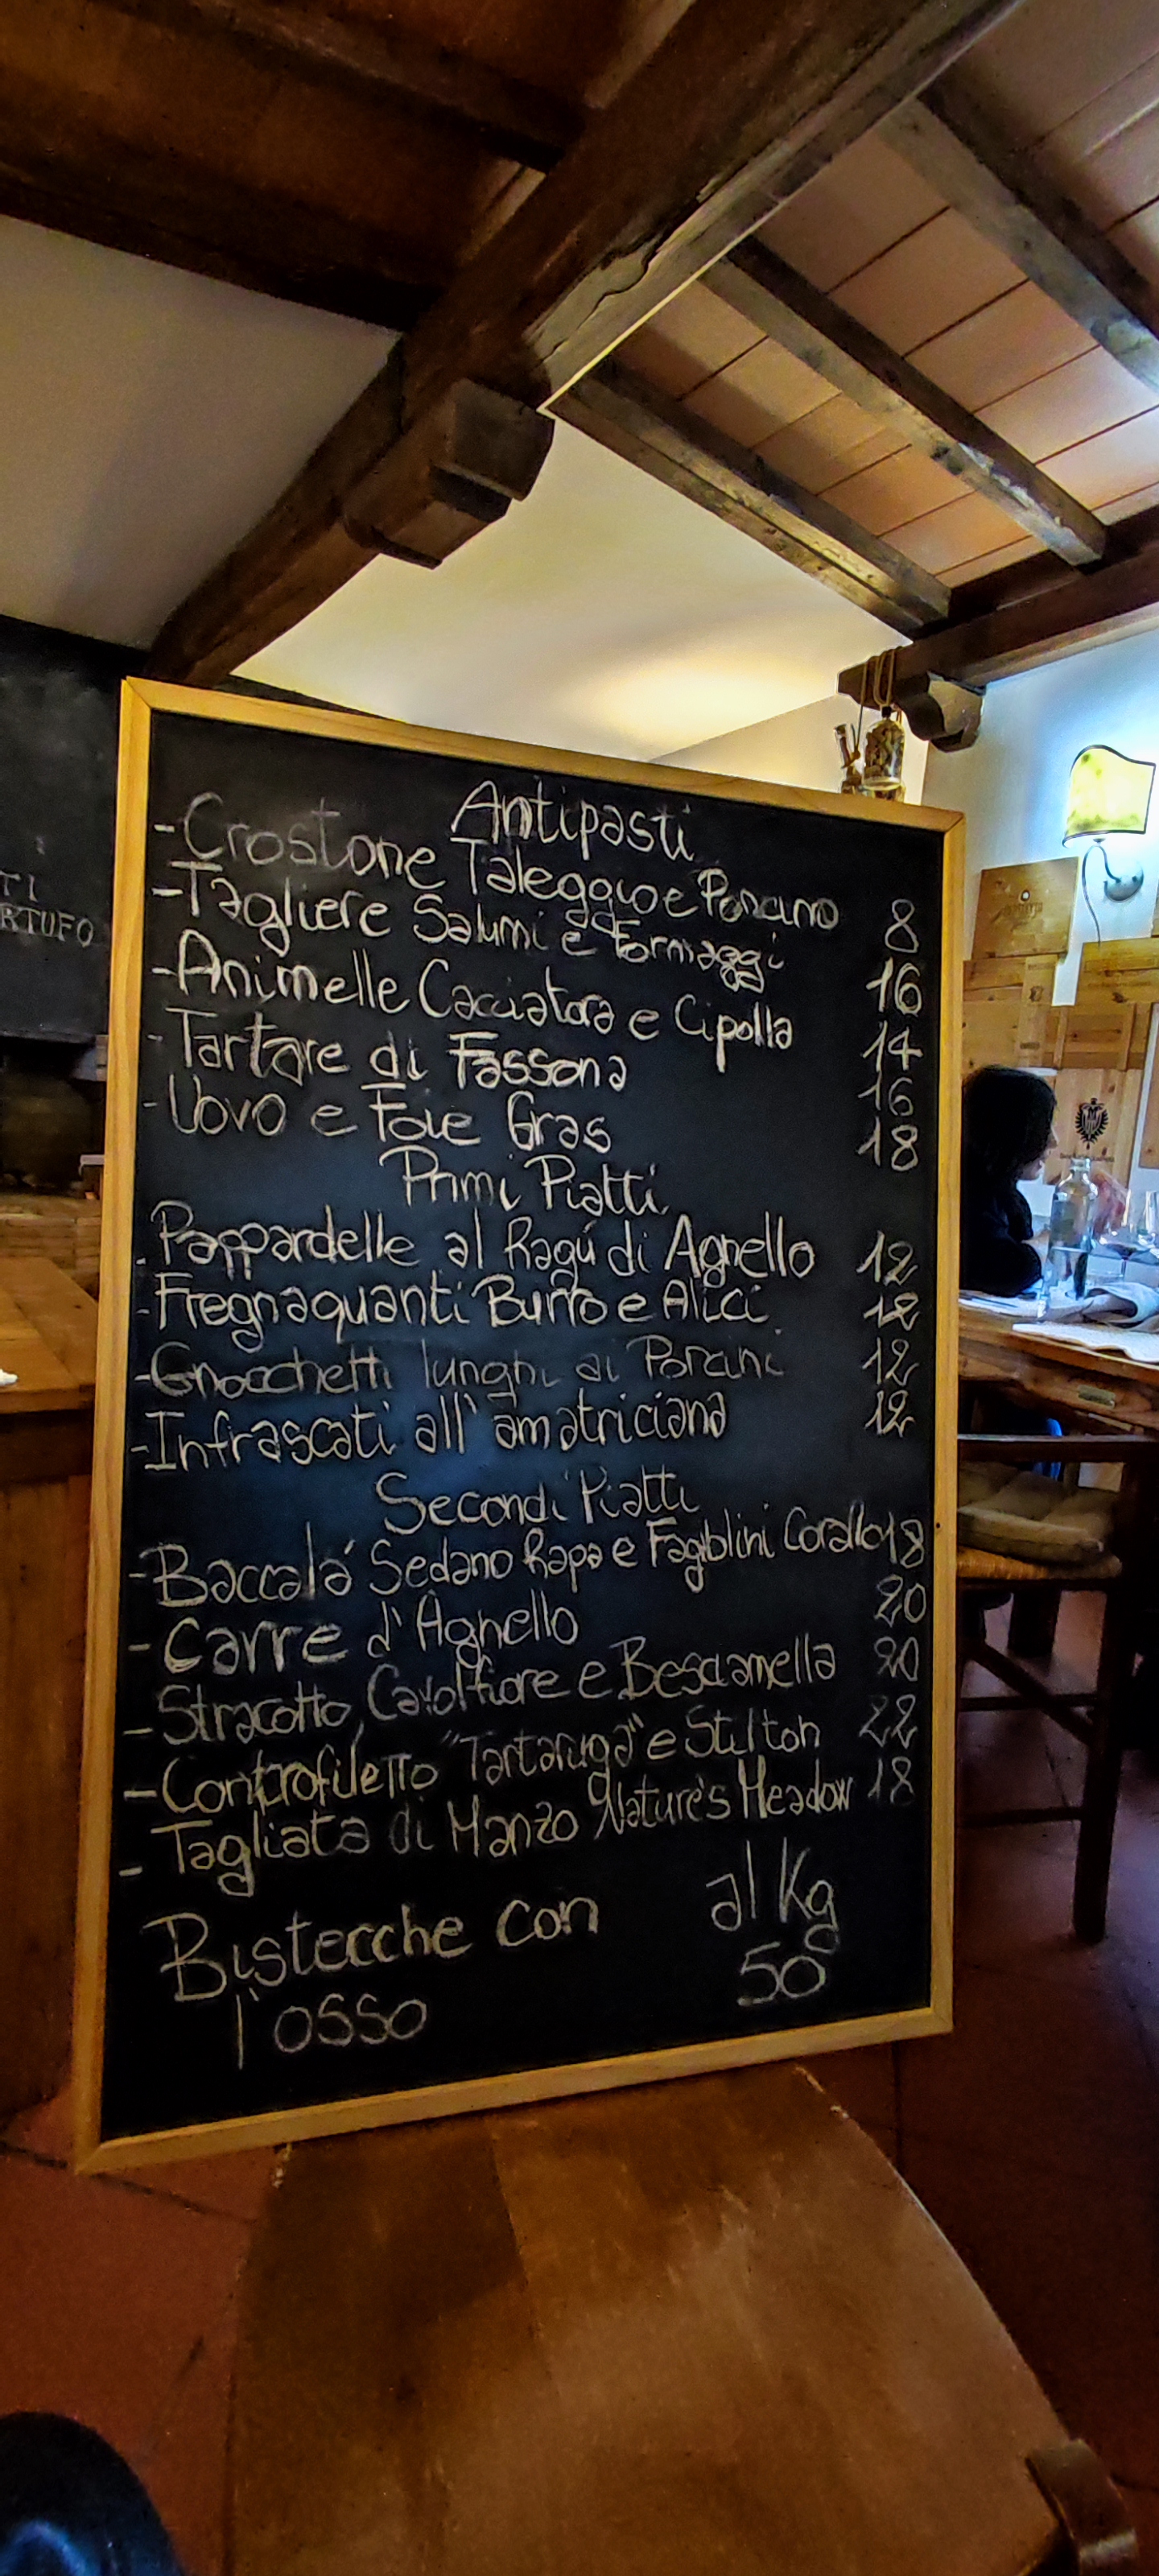 TI
RTUFO
Antipasti
-Crostone Taleggio e Porcino 8
-Tagliere Salumi e Formaggi 16
-Animelle Cacciatora e Cipolla 14
-Tartare di Fassona 16
-Uovo e Foie Gras 18
Primi Piatti
-Pappardelle al Ragú di Agnello 12
-Fregnaquanti Burro e Alici 12
-Gnocchetti lunghi ai Porcini 12
-Infrascati all'amatriciana 12
Secondi Piatti
-Baccalá Sedano Rapa e Fagiolini Corallo 18
-Carre d'Agnello 20
-Stracotto, Cavolfiore e Besciamella 20
-Controfiletto "Tartaruga" e Stilton 22
-Tagliata di Manzo Nature's Meadow 18
Bistecche con al Kg
l'osso 50